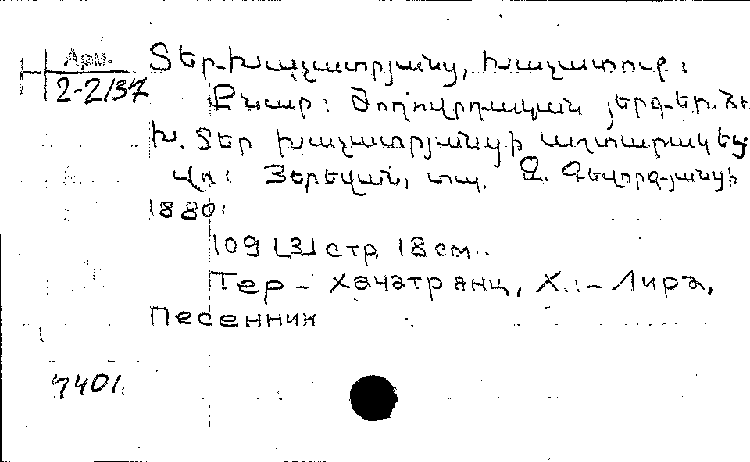 Арм.
2-2/37
Տեր-Խաչատրյանց, Խաչատուր:
Քնար: Ժողովրդական յերգեր.
Խ. Տեր Խաչատրյանցի աշխատակ
Վր: Յերեվան, տպ. Զ. Գեվորգյանցի
1880:
109 [3] стр 18 см.
Тер - Хачатрянц, Х. :- Лира,
Песенник
7401